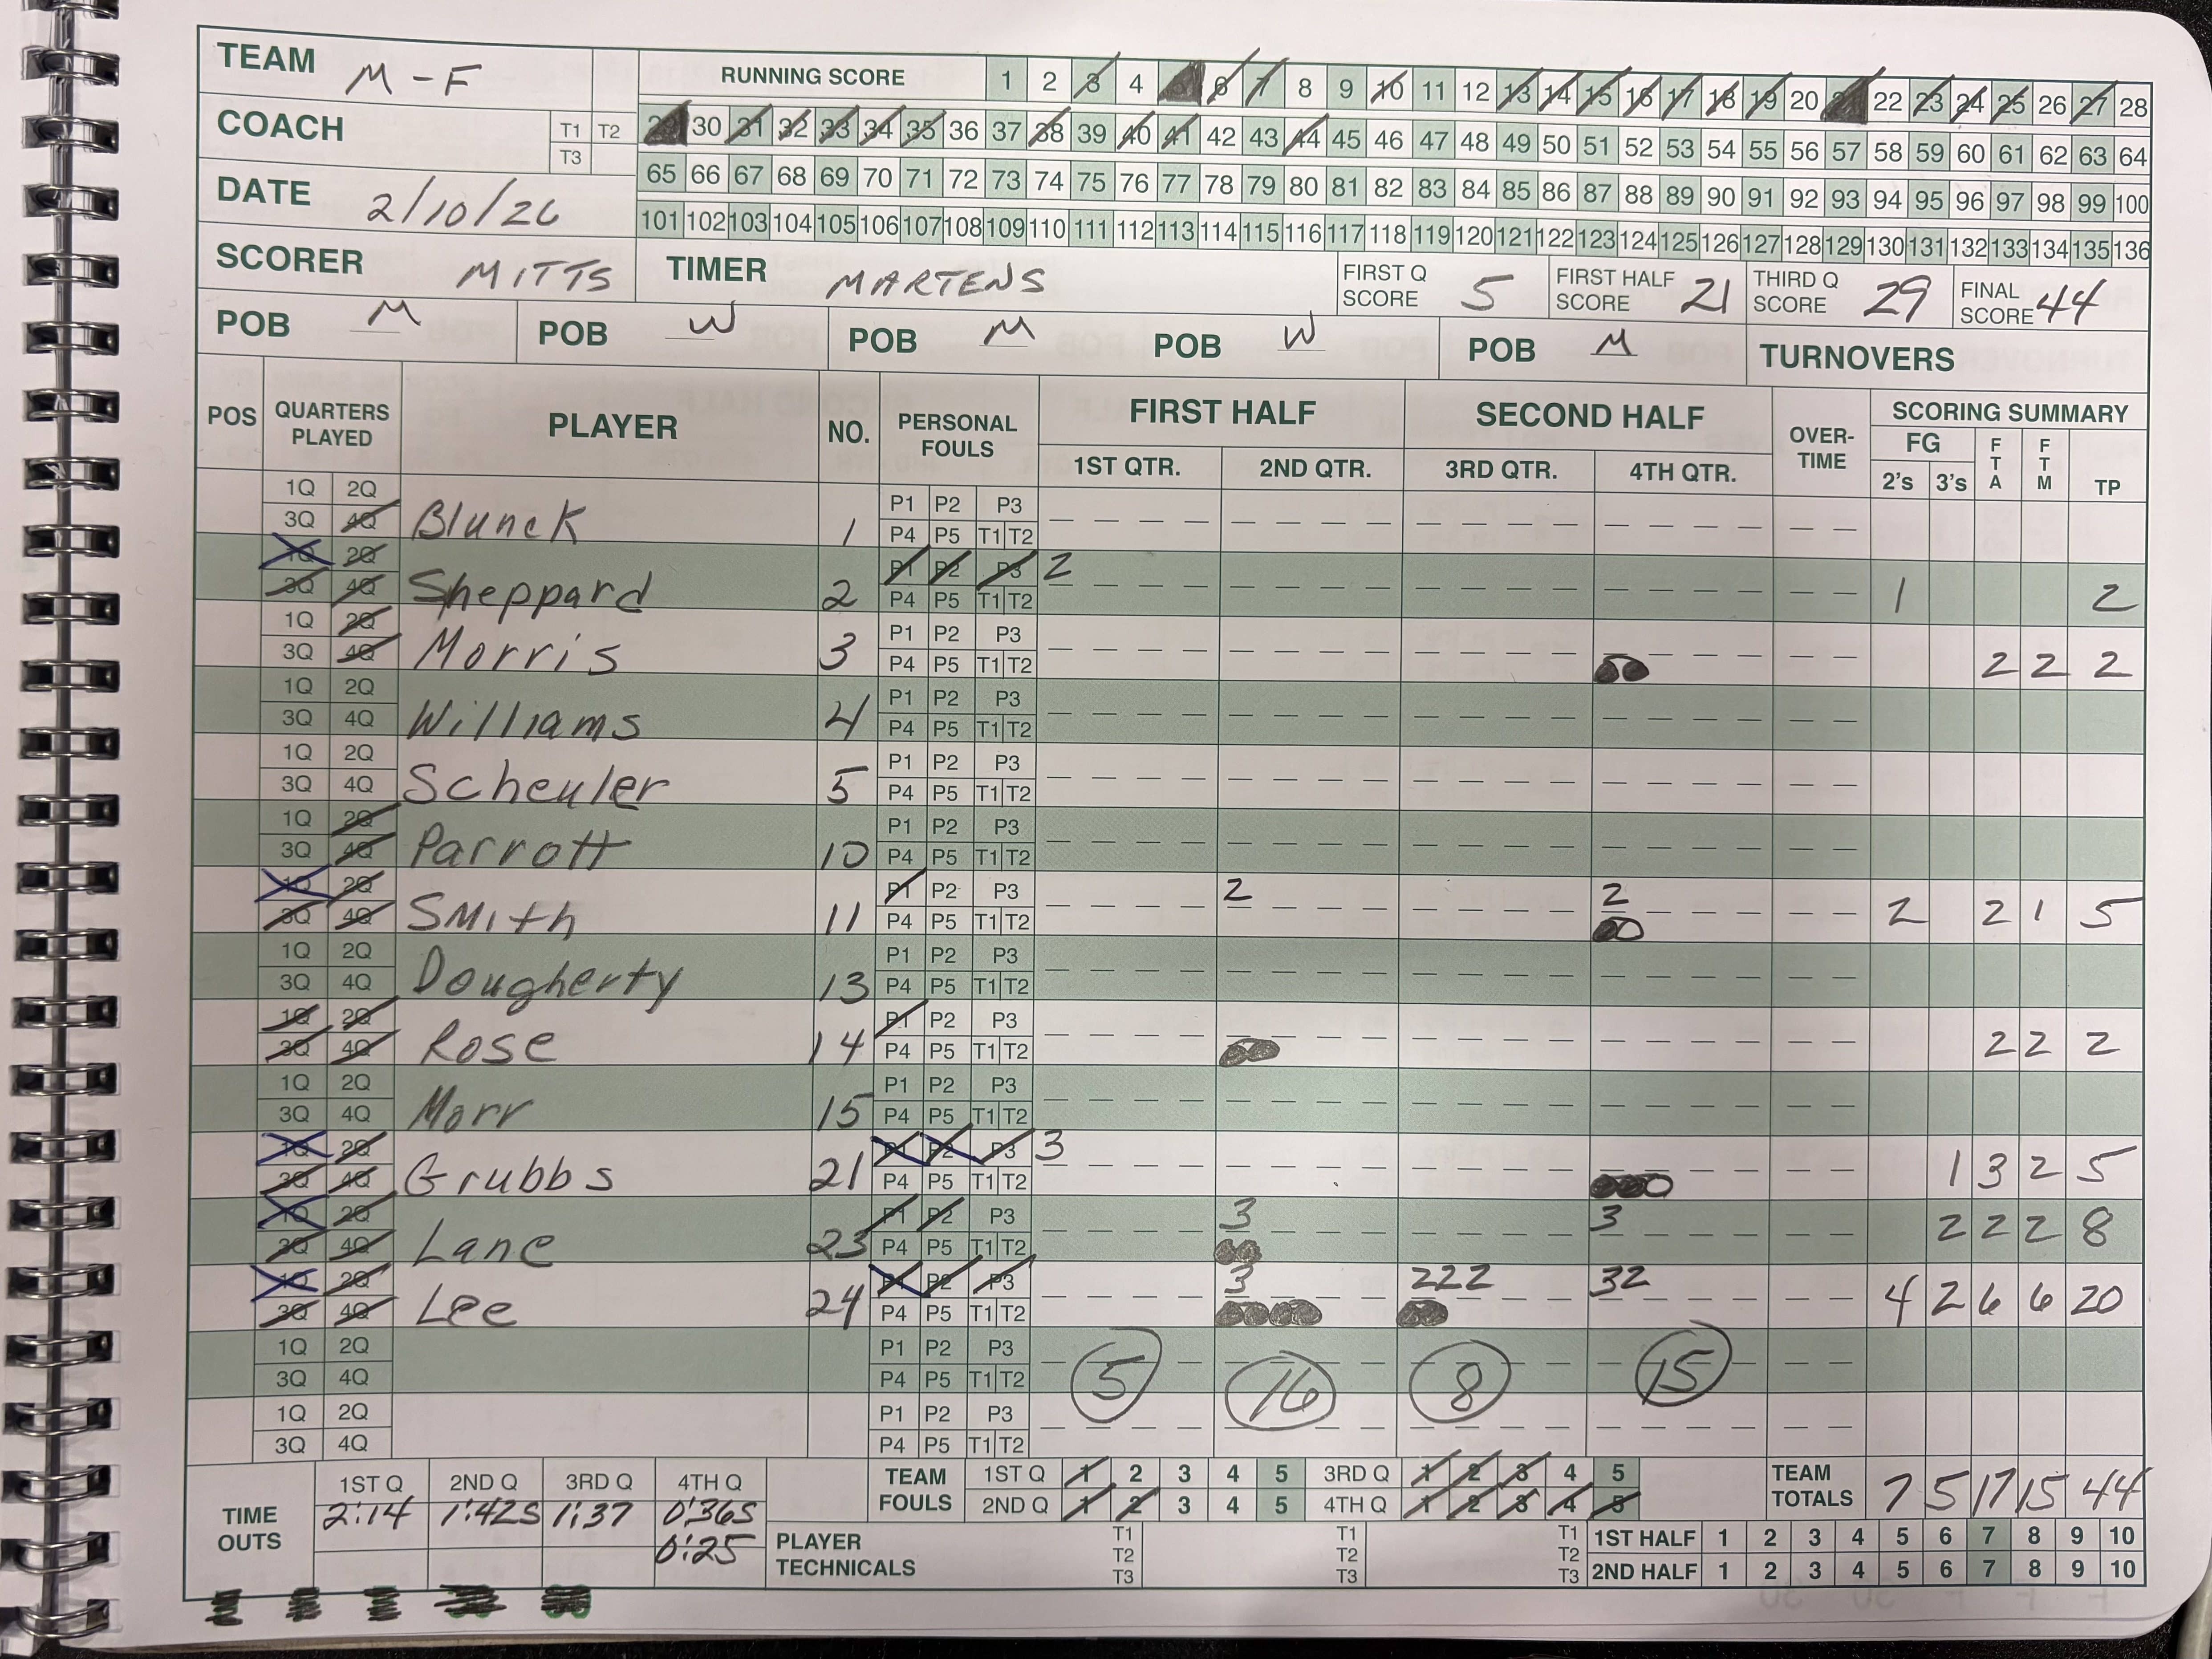 TEAM M-F RUNNING SCORE 1 2 3 4 5 6 7 8 9 10 11 12 13 14 15 16 17 18 19 20 21 22 23 24 25 26 27 28
COACH T1 T2 T3 29 30 31 32 33 34 35 36 37 38 39 40 41 42 43 44 45 46 47 48 49 50 51 52 53 54 55 56 57 58 59 60 61 62 63 64
65 66 67 68 69 70 71 72 73 74 75 76 77 78 79 80 81 82 83 84 85 86 87 88 89 90 91 92 93 94 95 96 97 98 99 100
DATE 2/10/26 101 102 103 104 105 106 107 108 109 110 111 112 113 114 115 116 117 118 119 120 121 122 123 124 125 126 127 128 129 130 131 132 133 134 135 136
SCORER MITTS TIMER MARTENS FIRST Q SCORE 5 FIRST HALF SCORE 21 THIRD Q SCORE 29 FINAL SCORE 44
POB M POB W POB M POB W POB M TURNOVERS
POS QUARTERS PLAYED PLAYER NO. PERSONAL FOULS FIRST HALF SECOND HALF OVER-TIME SCORING SUMMARY
1ST QTR. 2ND QTR. 3RD QTR. 4TH QTR. FG 2's 3's FTA FTM TP
1Q 2Q 3Q 4Q Blunck 1 P1 P2 P3 P4 P5 T1 T2
1Q 2Q 3Q 4Q Sheppard 2 P1 P2 P3 P4 P5 T1 T2 2 1 2
1Q 2Q 3Q 4Q Morris 3 P1 P2 P3 P4 P5 T1 T2 2 2 2
1Q 2Q 3Q 4Q Williams 4 P1 P2 P3 P4 P5 T1 T2
1Q 2Q 3Q 4Q Scheuler 5 P1 P2 P3 P4 P5 T1 T2
1Q 2Q 3Q 4Q Parrott 10 P1 P2 P3 P4 P5 T1 T2
1Q 2Q 3Q 4Q Smith 11 P1 P2 P3 P4 P5 T1 T2 2 2 2 2 1 5
1Q 2Q 3Q 4Q Dougherty 13 P1 P2 P3 P4 P5 T1 T2
1Q 2Q 3Q 4Q Rose 14 P1 P2 P3 P4 P5 T1 T2 2 2 2
1Q 2Q 3Q 4Q Morr 15 P1 P2 P3 P4 P5 T1 T2
1Q 2Q 3Q 4Q Grubbs 21 P1 P2 P3 P4 P5 T1 T2 3 1 3 2 5
1Q 2Q 3Q 4Q Lane 23 P1 P2 P3 P4 P5 T1 T2 3 3 2 2 2 8
1Q 2Q 3Q 4Q Lee 24 P1 P2 P3 P4 P5 T1 T2 3 222 32 4 2 6 6 20
1Q 2Q 3Q 4Q P1 P2 P3 P4 P5 T1 T2 5 16 8 15
1Q 2Q 3Q 4Q P1 P2 P3 P4 P5 T1 T2
TIME OUTS 1ST Q 2ND Q 3RD Q 4TH Q TEAM FOULS 1ST Q 1 2 3 4 5 3RD Q 1 2 3 4 5 TEAM TOTALS 7 5 17 15 44
2:14 1:42S 1:37 0:36S 2ND Q 1 2 3 4 5 4TH Q 1 2 3 4 5
0:25 PLAYER TECHNICALS T1 T2 T3 T1 T2 T3 T1 T2 T3 1ST HALF 1 2 3 4 5 6 7 8 9 10
2ND HALF 1 2 3 4 5 6 7 8 9 10